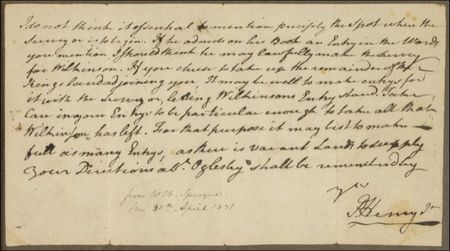 I do not think it essential to mention precisely the Spot where the
Survey or is to begin. If he admit on his Book an Entry in the Words
you mention I should think he may lawfully make the Survey
for Wilkinson. If you chuse to take up the remainder of the
Kings Land adjoining you, it may be well to make entrys for
it with the Surveyor, letting Wilkinsons Entry stand. Take
Care in your Entrys to be particular enough to take all that
Wilkinson has left. For that purpose it may best to make
full as many Entrys, as there is vacant Land to supply
Your Directions abt. Oglesby shall be remembred by
Yrs
P. Henry Jr
from W. B. Sprague
30th April 1831